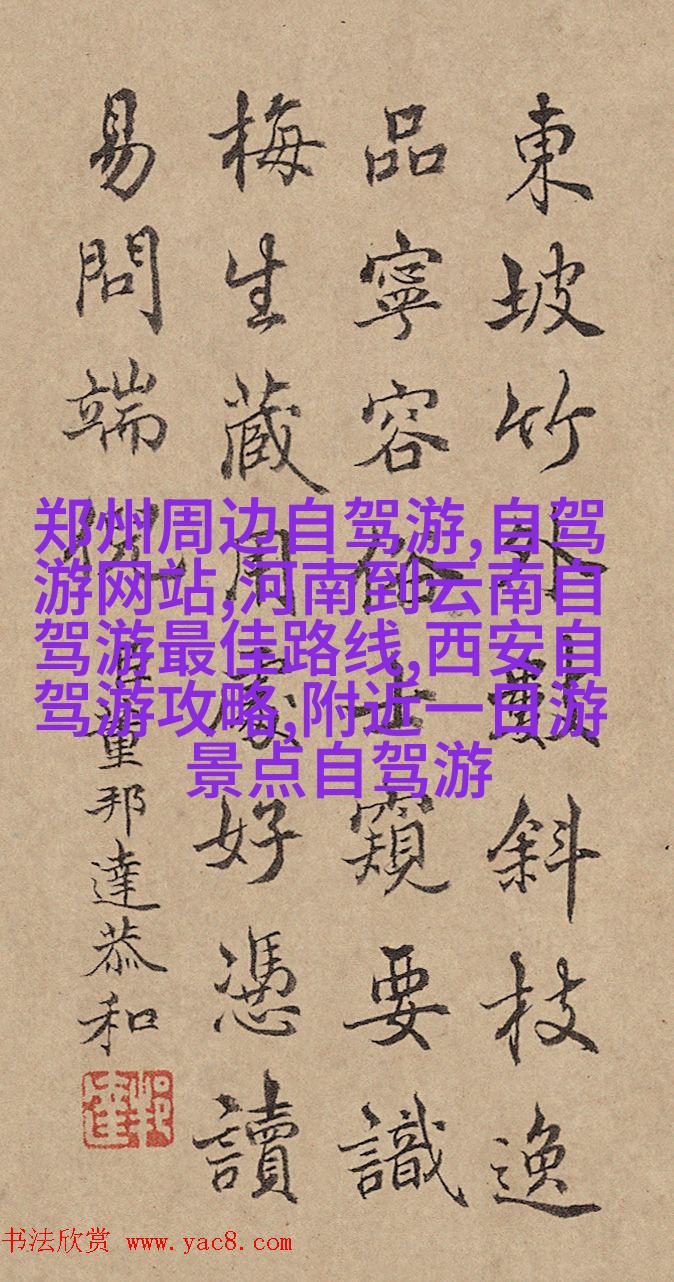 東坡竹外數斜枝逸
品寧容俗士窺要識
梅生藏用處好憑讀
易問端倪
臣董邦達恭和
郑州周边自驾游,自驾
游网站,河南到云南自
驾游最佳路线,西安自
驾游攻略,附近一日游
景点自驾游
书法欣赏 www.yac8.com